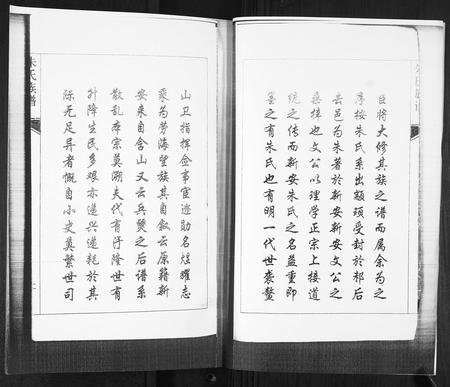 臣将大修其族之谱而属余为之
序按朱氏系出颛顼受封於邾后
去邑为朱著於新安新安文公之
桑梓也文公以理学正宗上接道
统之传而新安朱氏之名益重即
鳌之有朱氏也有明一代世袭鳌
山卫指挥佥事宦迹勋名煜耀志
乘为劳海望族其自叙云原籍新
安来自含山又云兵燹之后谱系
散乱本宗莫溯夫代有汙隆世有
升降生民多艰亦递兴递耗於其
际无足异者慨自小史奠繁世司
朱氏族谱